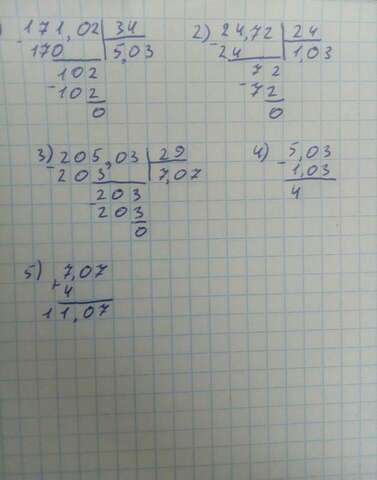 ) 171,02 | 34
- 170 | 5,03
102
- 102
0
2) 24,72 | 24
- 24 | 1,03
72
- 72
0
3) 205,03 | 29
- 203 | 7,07
203
- 203
0
4) - 5,03
1,03
4
5) 7,07
+ 4
11,07